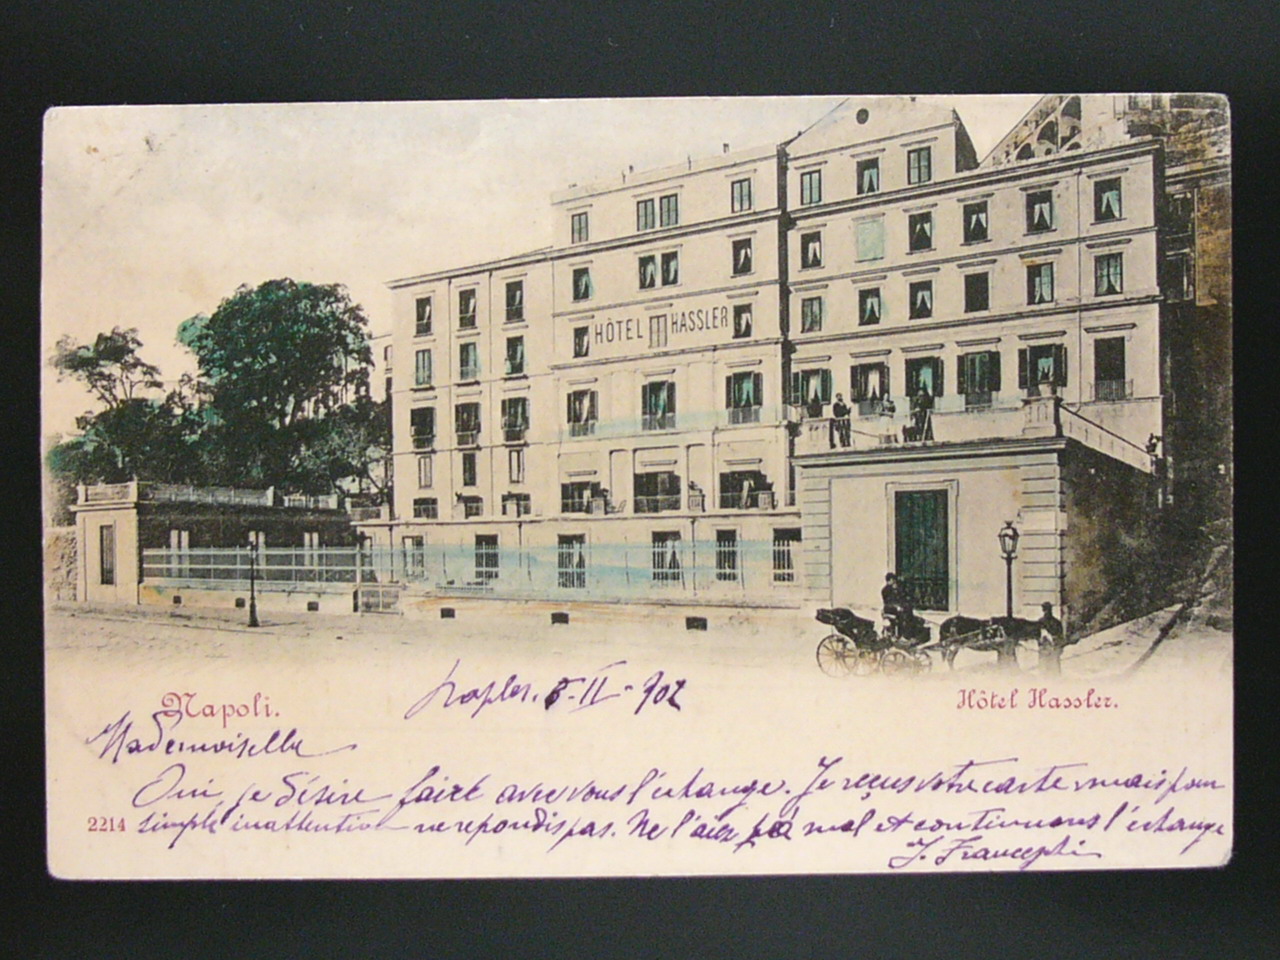 HÔTEL HASSLER
Napoli.
Naples. 8-II-902
Hôtel Hassler.
Mademoiselle
Oui, je désire faire avec vous l'échange. Je reçus votre carte mais pour
2214
simple inattention ne repondis pas. Ne l'aiez pà mal et continuons l'échange
J.